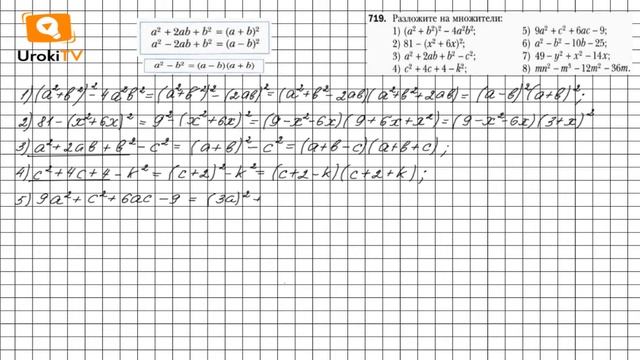 UrokiTV
a² + 2ab + b² = (a + b)²
a² − 2ab + b² = (a − b)²
a² − b² = (a − b)(a + b)
719. Разложите на множители:
1) (a² + b²)² − 4a²b²;
2) 81 − (x² + 6x)²;
3) a² + 2ab + b² − c²;
4) c² + 4c + 4 − k²;
5) 9a² + c² + 6ac − 9;
6) a² − b² − 10b − 25;
7) 49 − y² + x² − 14x;
8) mn² − m³ − 12m² − 36m.
1) (a²+b²)² − 4a²b² = (a²+b²)² − (2ab)² = (a²+b² − 2ab)(a²+b²+2ab) = (a−b)²(a+b)²;
2) 81 − (x²+6x)² = 9² − (x²+6x)² = (9−x²−6x)(9+6x+x²) = (9−x²−6x)(3+x)²
3) a²+2ab+b² − c² = (a+b)² − c² = (a+b−c)(a+b+c);
4) c²+4c+4 − k² = (c+2)² − k² = (c+2−k)(c+2+k);
5) 9a²+c²+6ac − 9 = (3a)² +